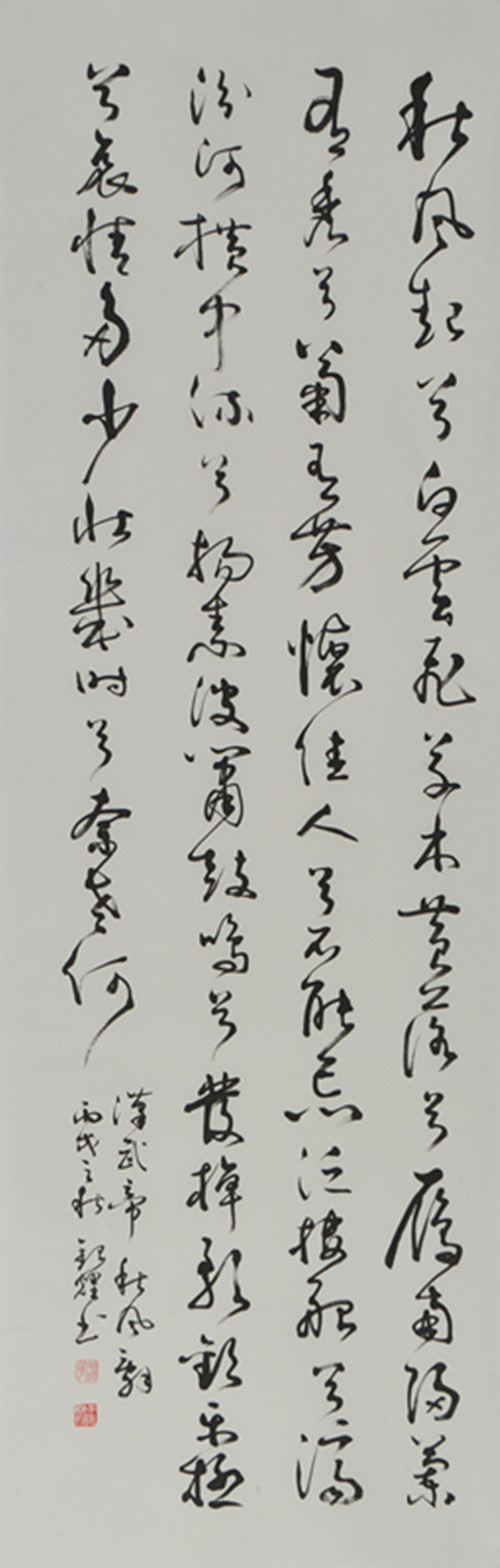 秋風起兮白雲飛草木黄落兮雁南歸蘭
有秀兮菊有芳懷佳人兮不能忘泛樓船兮濟
汾河橫中流兮揚素波簫鼓鳴兮發棹歌歡樂極
兮哀情多少壯幾時兮奈老何
漢武帝秋風辭
丙戌之秋 書